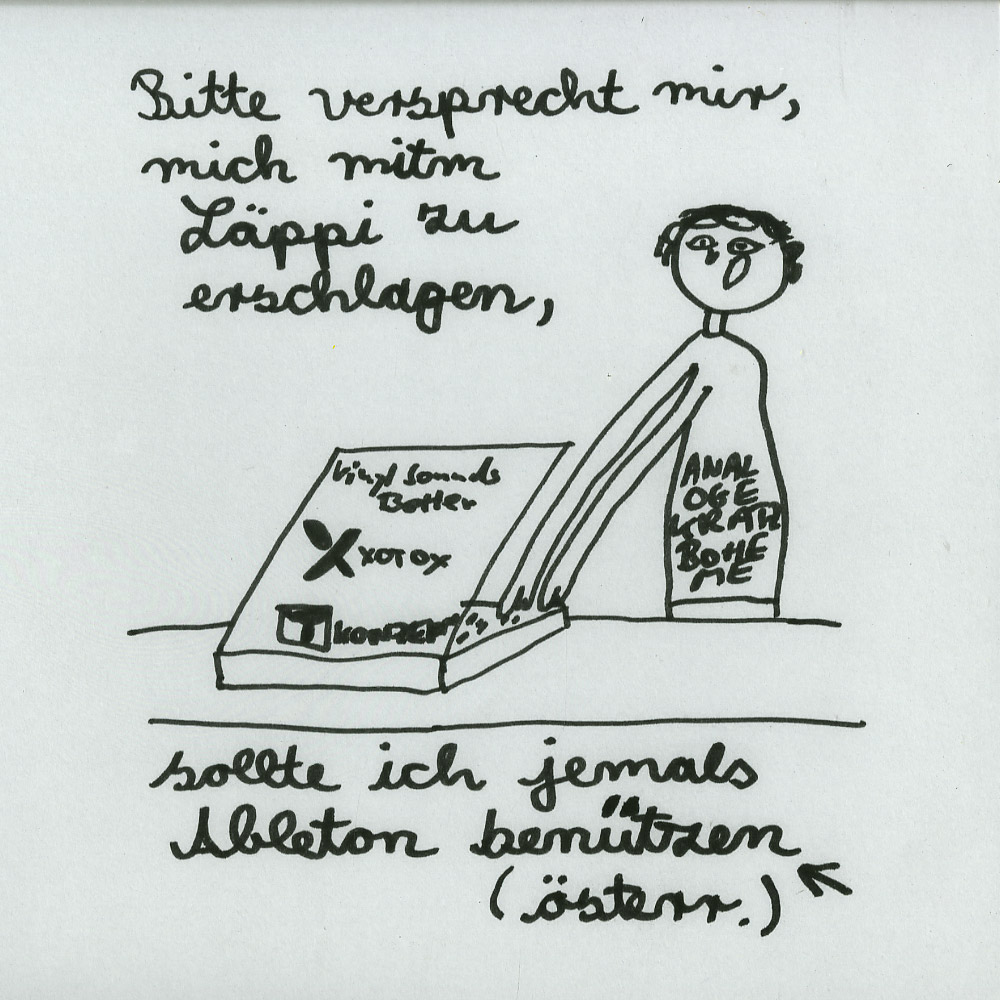 Bitte versprecht mir,
mich mitm
Läppi zu
erschlagen,
Vinyl Sounds
Better
XXOTOX
T KONZERN
ANAL
OGE
KRATZ
BOHE
ME
sollte ich jemals
Ableton benützen
(österr.)